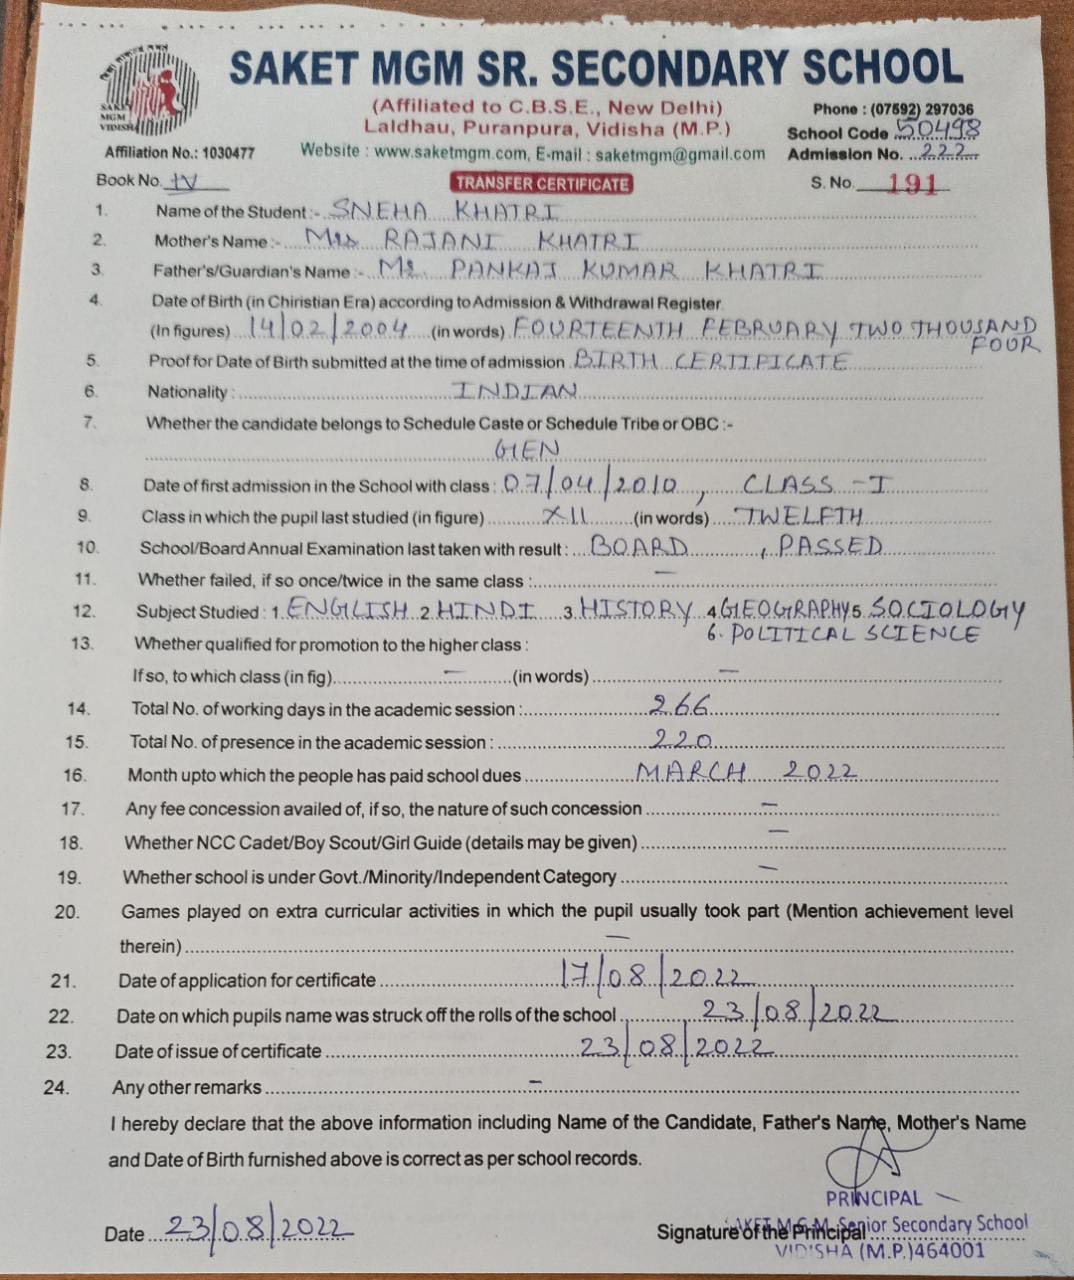 SAKET MGM SR. SECONDARY SCHOOL
SAKET
MGM
VIDISHA
(Affiliated to C.B.S.E., New Delhi)
Phone : (07592) 297036
Laldhau, Puranpura, Vidisha (M.P.)
School Code 50498
Affiliation No.: 1030477
Website : www.saketmgm.com, E-mail : saketmgm@gmail.com
Admission No. 222
Book No. IV
TRANSFER CERTIFICATE
S. No. 191
1. Name of the Student :- SNEHA KHATRI
2. Mother's Name :- Mrs RAJANI KHATRI
3. Father's/Guardian's Name :- Mr. PANKAJ KUMAR KHATRI
4. Date of Birth (in Chiristian Era) according to Admission & Withdrawal Register
(In figures) 14/02/2004 (in words) FOURTEENTH FEBRUARY TWO THOUSAND
FOUR
5. Proof for Date of Birth submitted at the time of admission BIRTH CERTIFICATE
6. Nationality : INDIAN
7. Whether the candidate belongs to Schedule Caste or Schedule Tribe or OBC :-
GEN
8. Date of first admission in the School with class : 07/04/2010, CLASS - I
9. Class in which the pupil last studied (in figure) XII (in words) TWELFTH
10. School/Board Annual Examination last taken with result : BOARD, PASSED
11. Whether failed, if so once/twice in the same class : —
12. Subject Studied : 1. ENGLISH 2. HINDI 3. HISTORY 4. GEOGRAPHY 5. SOCIOLOGY
6. POLITICAL SCIENCE
13. Whether qualified for promotion to the higher class :
If so, to which class (in fig) — (in words) —
14. Total No. of working days in the academic session : 266
15. Total No. of presence in the academic session : 220
16. Month upto which the people has paid school dues MARCH 2022
17. Any fee concession availed of, if so, the nature of such concession —
18. Whether NCC Cadet/Boy Scout/Girl Guide (details may be given) —
19. Whether school is under Govt./Minority/Independent Category —
20. Games played on extra curricular activities in which the pupil usually took part (Mention achievement level
therein) —
21. Date of application for certificate 17/08/2022
22. Date on which pupils name was struck off the rolls of the school 23/08/2022
23. Date of issue of certificate 23/08/2022
24. Any other remarks —
I hereby declare that the above information including Name of the Candidate, Father's Name, Mother's Name
and Date of Birth furnished above is correct as per school records.
PRINCIPAL
Date 23/08/2022
Signature of the Principal
SAKET M.G.M. Senior Secondary School
VIDISHA (M.P.) 464001